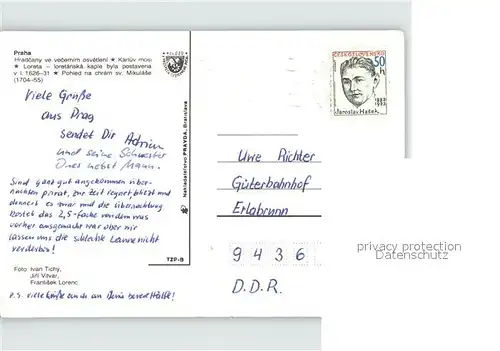 Praha
Hradčany ve večerním osvětlení ★ Karlův most
★ Loreta – loretánská kaple byla postavena
v l. 1626–31 ★ Pohled na chrám sv. Mikuláše
(1704–55)
Viele Grüße
aus Prag
sendet Dir Adrian
und seine Schwester
Ines nebst Mann.
Sind ganz gut angekommen über-
nachten privat, zur Zeit regnet, blitzt und
donnert es zwar und die Übernachtung
kostet das 2,5-fache von dem was
vorher ausgemacht war aber wir
lassen uns die schlechte Laune nicht
verderben!
Foto: Ivan Tichý,
Jiří Vitvar,
František Lorenc
P.S. Viele Grüße auch an Deine
Nakladatelství PRAVDA, Bratislava
TZP-B
ČESKOSLOVENSKO
50
h
1883
1923
Jaroslav Hašek
Uwe Richter
Güterbahnhof
Erlabrunn
9 4 3 6
D.D.R.
privacy protection
Datenschutz